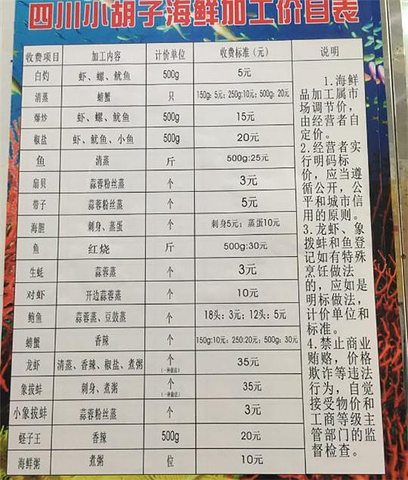 四川小胡子海鲜加工价目表
收费项目 加工内容 计价单位 收费标准（元） 说明
白灼 虾、螺、鱿鱼 500g 5元
清蒸 螃蟹 只 150g: 5元；250g:10元；500g: 20元
爆炒 虾、螺、鱿鱼 500g 15元
椒盐 虾、鱿鱼、小鱼 500g 20元
鱼 清蒸 斤 500g:25元
扇贝 蒜蓉粉丝蒸 个 3元
带子 蒜蓉粉丝蒸 个 5元
海胆 刺身、蒸蛋 个 刺身5元；蒸蛋10元
鱼 红烧 斤 500g:30元
生蚝 蒜蓉蒸 个 3元
对虾 开边蒜蓉蒸 个 10元
鲍鱼 蒜蓉蒸、豆鼓蒸 个 18头：3元；12头：5元
螃蟹 香辣 个 150g:10元；250:20元；500g: 30元
龙虾 清蒸、香辣、椒盐、煮粥 个 35元
象拔蚌 刺身、煮粥 个 35元
小象拔蚌 蒜蓉粉丝蒸 个 3元
蛏子王 香辣 500g 20元
海鲜粥 煮粥 位 10元
1.海鲜
品加工属市
场调节价，
由经营者自
定价。
2.经营者实
行明码标
价，应当遵
循公开，公
平和城市信
用的原则。
3.龙虾、象
拨蚌和鱼登
记如有特殊
烹饪做法
的，应如是
明标做法，
计价单位和
标准。
4.禁止商业
贿赂，价格
欺诈等违法
行为，自觉
接受物价和
工商等级主
管部门的监
督检查。